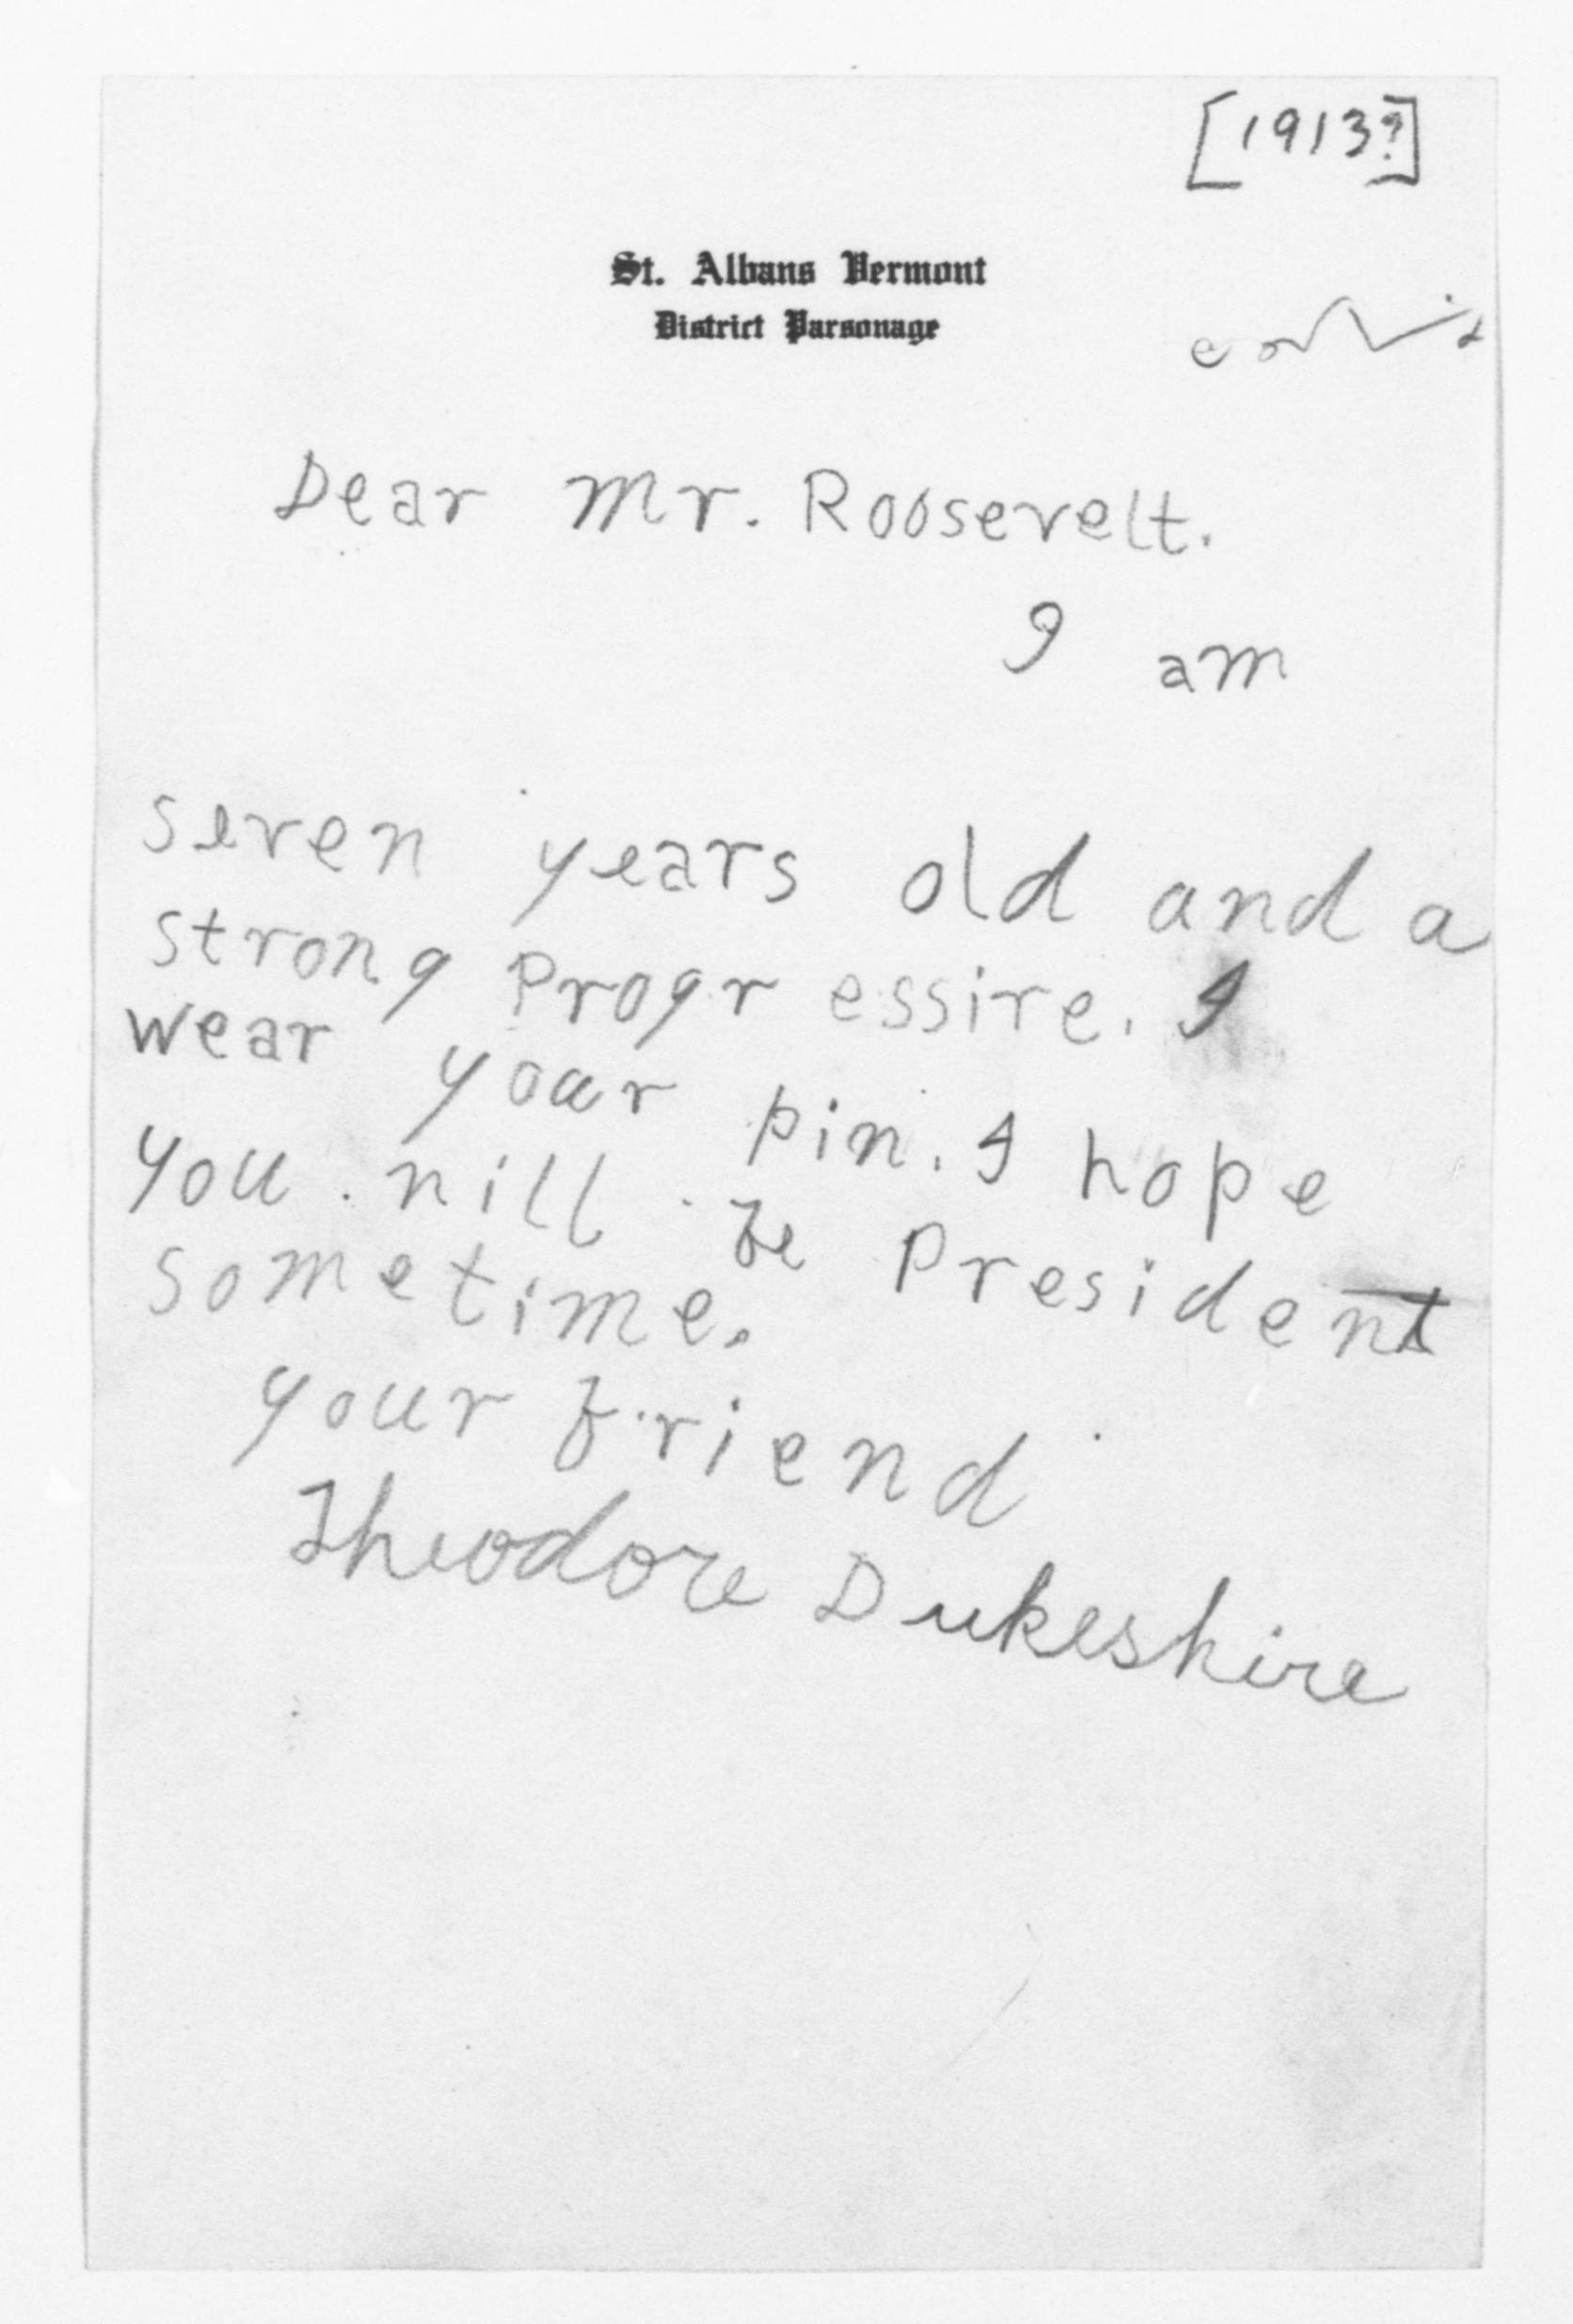 [1913?]
St. Albans Vermont
District Parsonage
Dear Mr. Roosevelt.
I am
seven years old and a
strong Progressive. I
wear your pin. I hope
you will be President
sometime.
your friend
Theodore Dukeshire